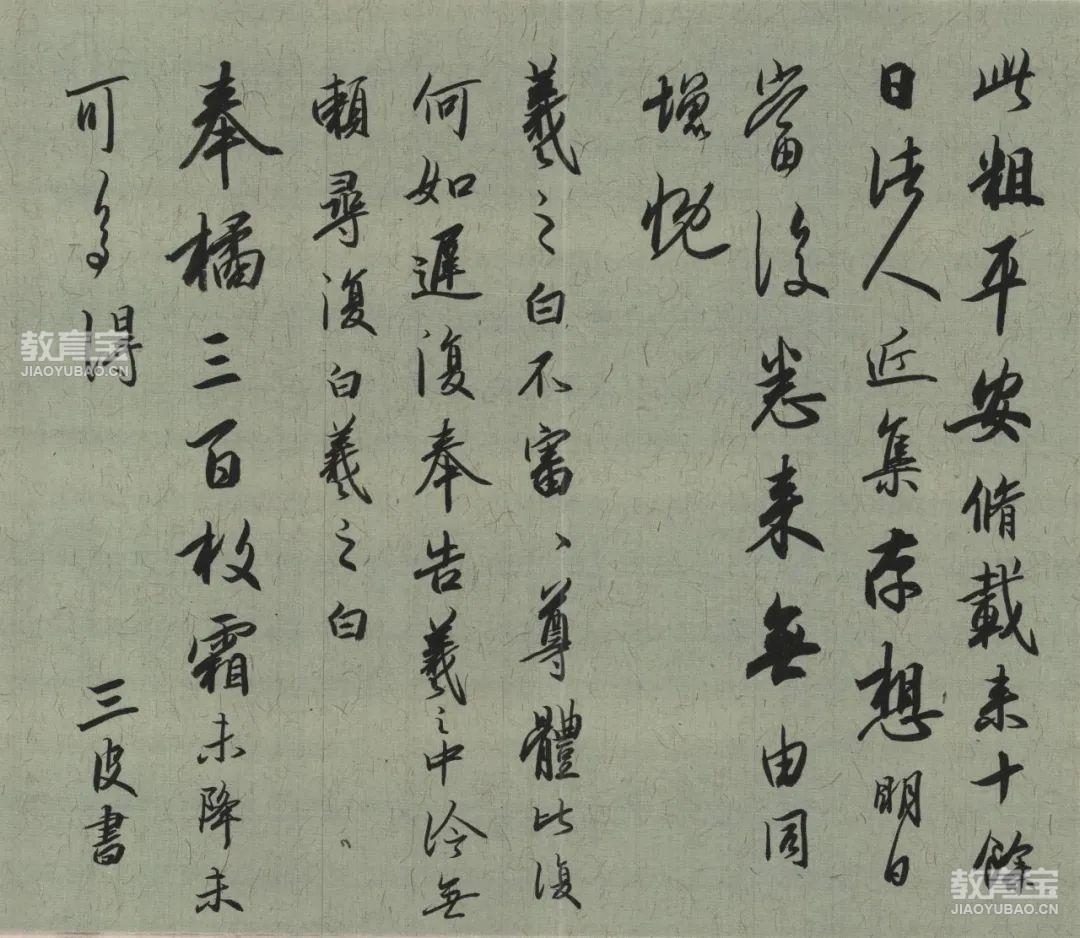 此粗平安脩載来十餘
日諸人近集存想明日
當復悉来無由同
增慨
羲之白不審、尊體比復
何如遲復奉告羲之中冷無
賴尋復白羲之白
奉橘三百枚霜未降未
可多得
三皮書
教育宝
JIAOYUBAO.CN
教育宝
JIAOYUBAO.CN